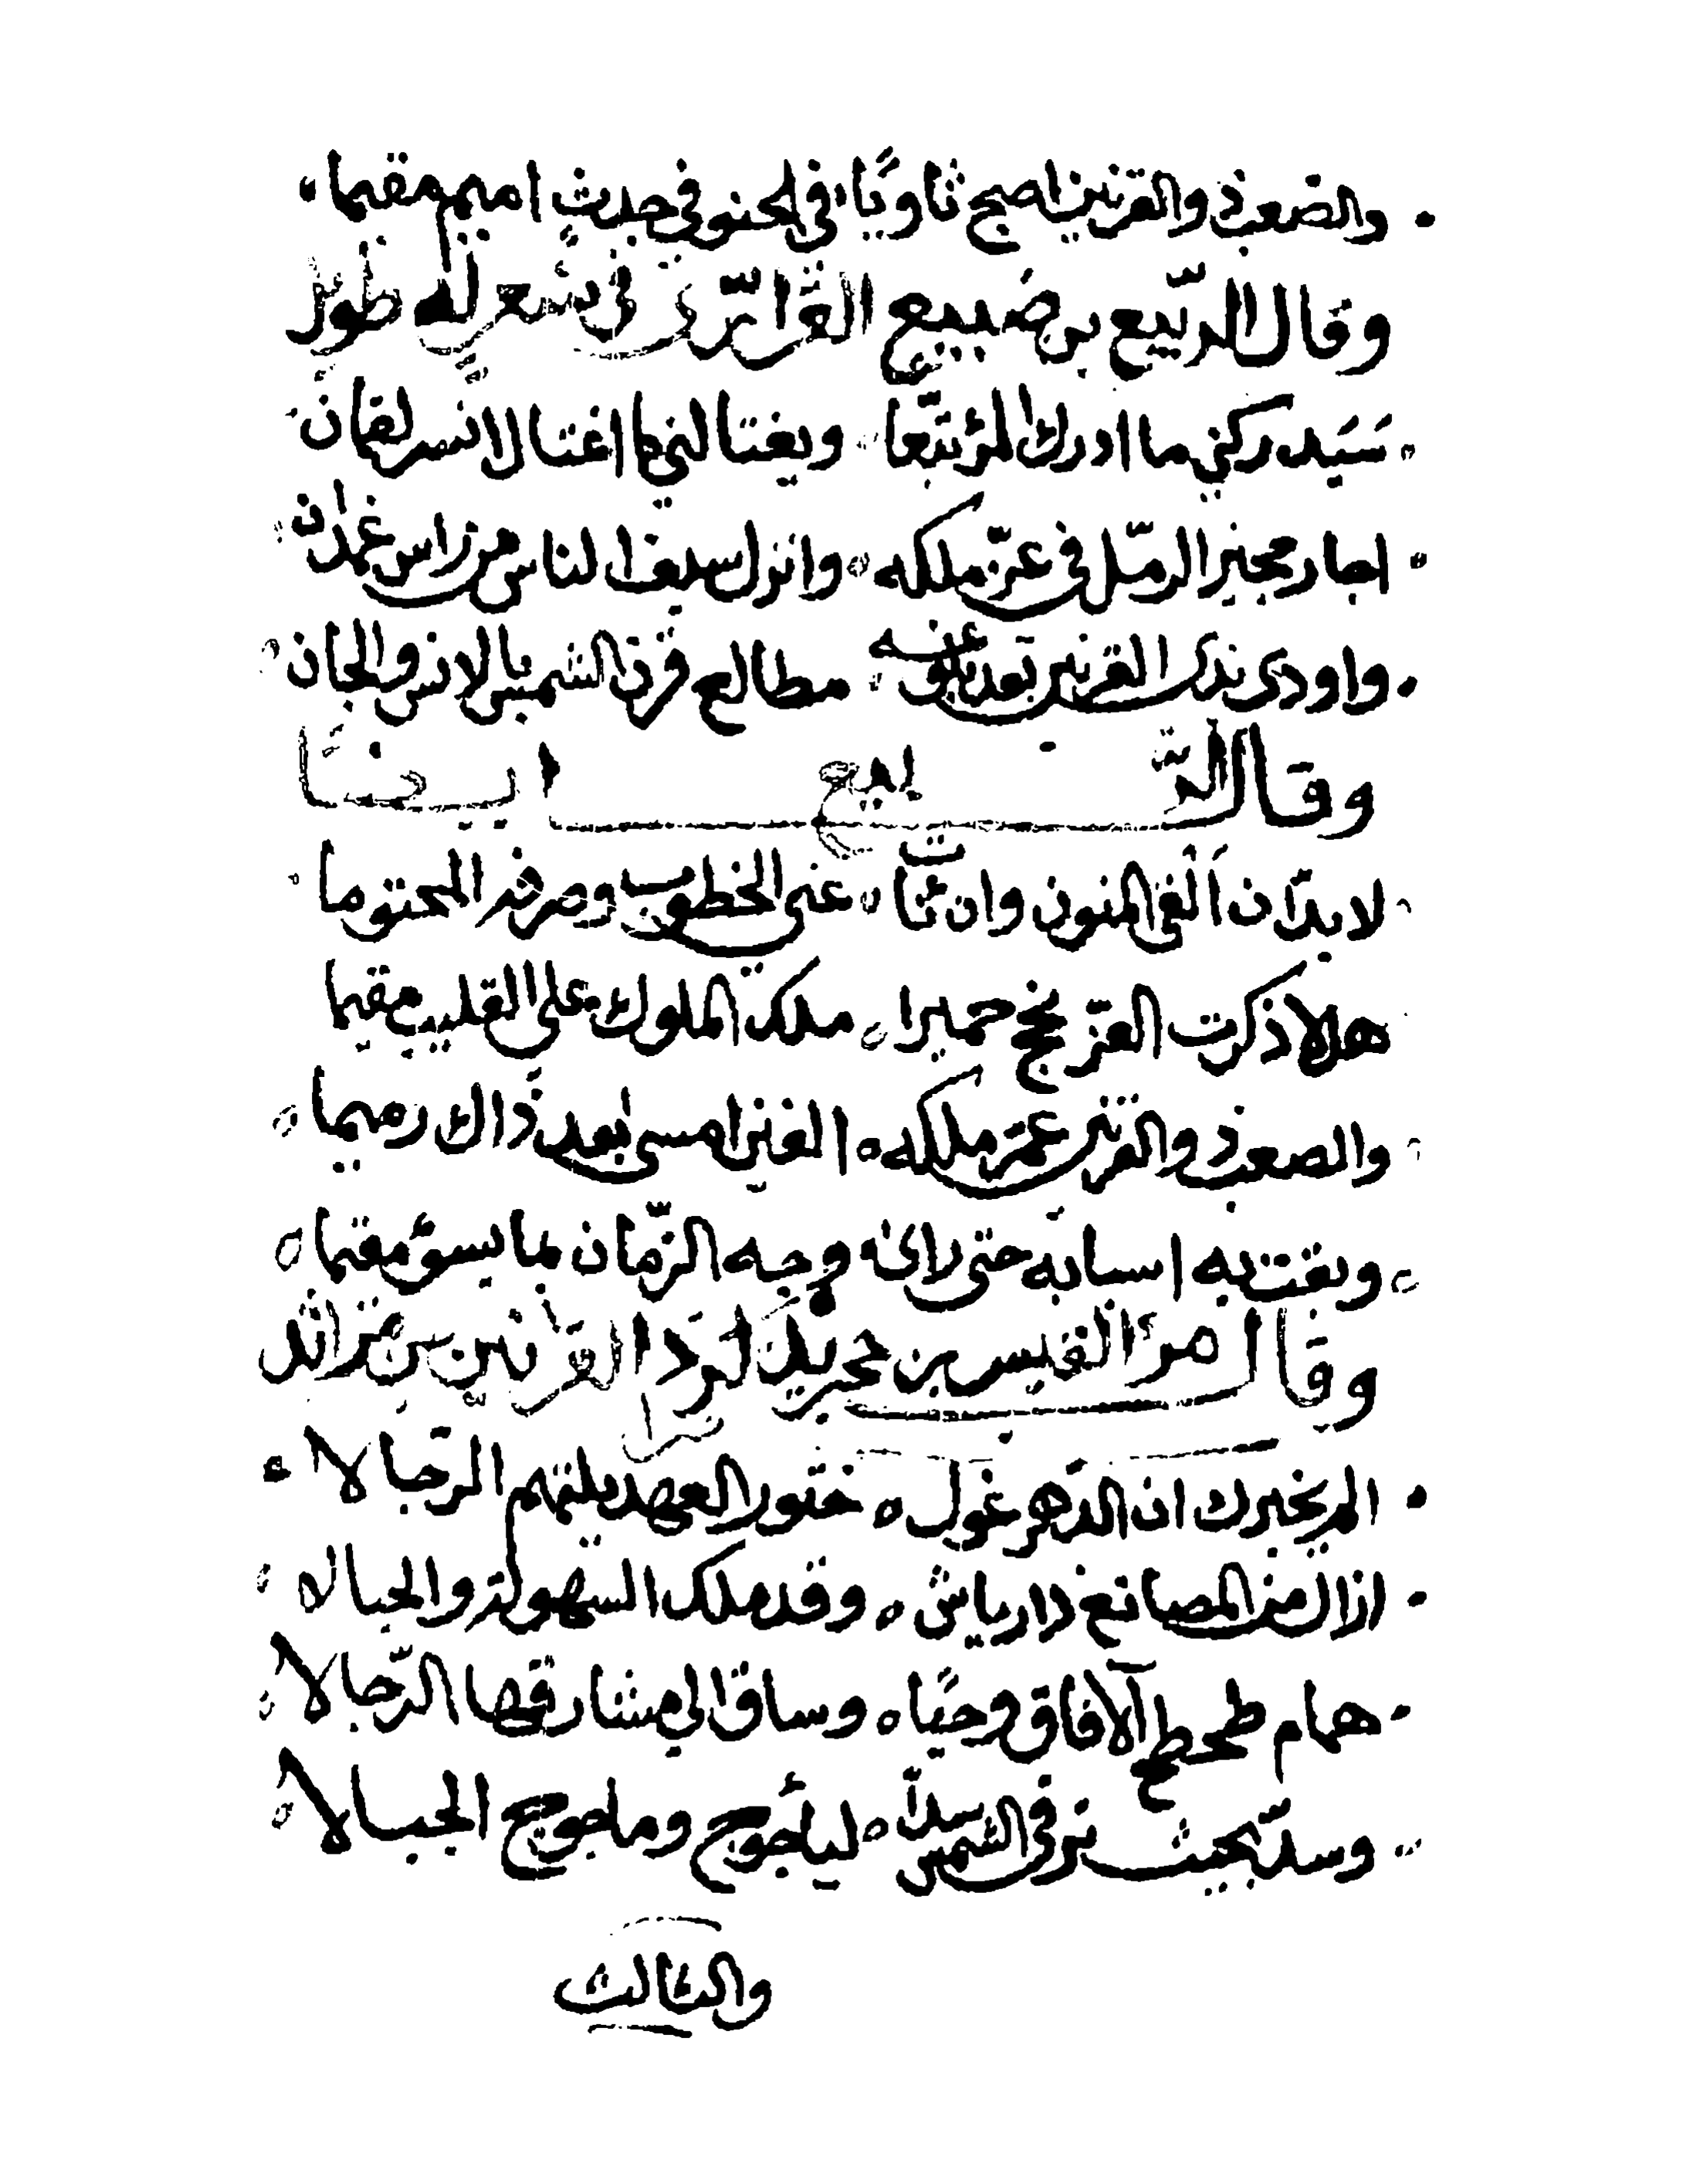 والصعب ذو القرنين اصبح ثاويًا في الحنو في جدث اميم مقيما
وقال الربّيع بن ضبيع الفزاري في شعر له طويل
سَيَدركني ما ادرك المرء تبّعا ويغتالني كما اغتال لانسر لقمان
اجار مجير الرمّل في عزّ ملكه وانزل سيفا لناس من راس غمدان
واودى بذى القرنين بعد بلوغه مطالع قرن الشمس بالانس والجان
وقال الرّبيع ايضًا
لا بدّ ان اَلقى المنون وان نَأت عني الخطوب وصرفه المحتوما
هلا ذكرت العز نجح حميرا ملك الملوك على القليب مقيما
والصعب ذو القرنين عمّر ملكه الفين امسى بعد ذاك رميما
وبقت به اسبابه حتى راى وجه الزّمان بما يسوء مقيما
وقال امرؤ القيس بن حجر يذكر ذا القرنين بن مراثد شرا
الم يخبرك ان الدّهر غول ختور العهد يلتهم الرّجالا
ازال من المصانع ذا رياش وقد ملك السّهولة والجبالا
همام طحطح الآفاق وحيًا وساق الى مشارقها الرّجالا
وسدّ بحيث ترقى الشمس سدّاً ليأجوج وماجوج الجبالا
والثالث